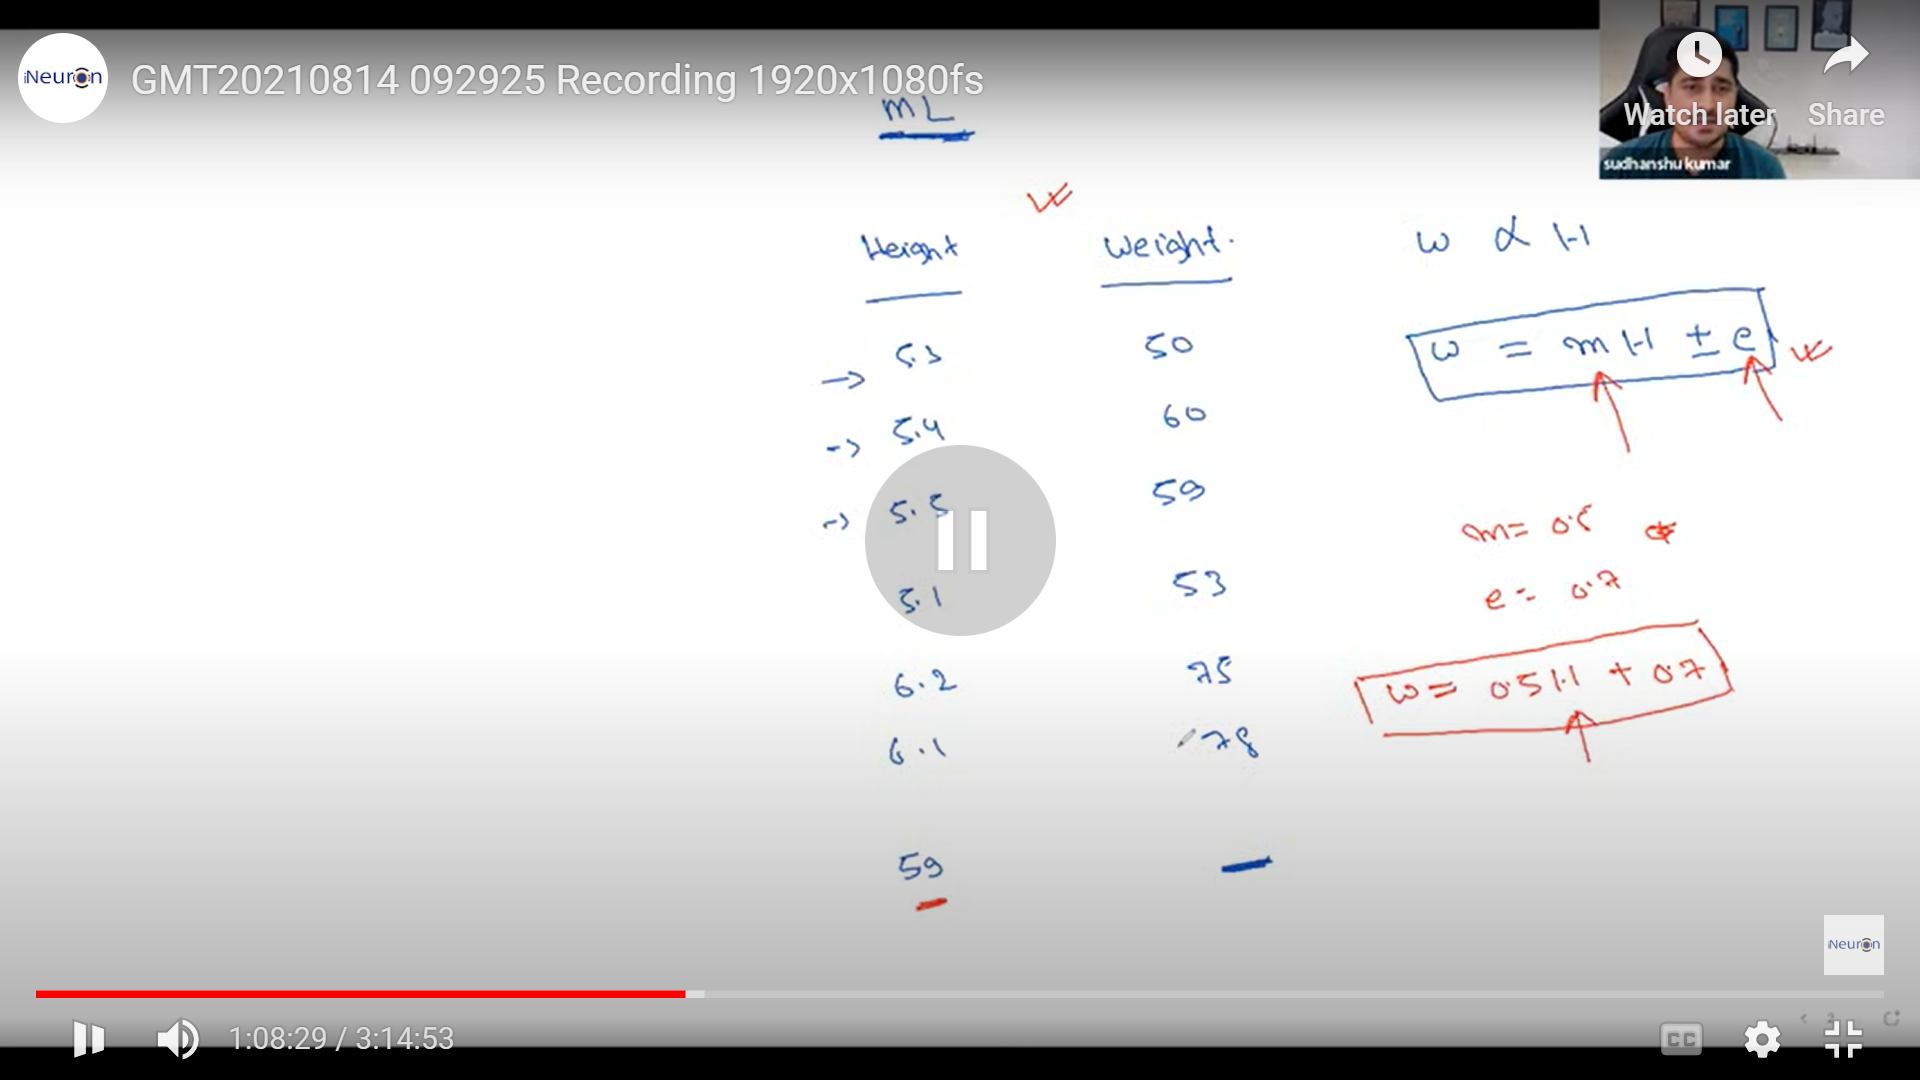 iNeuron
GMT20210814 092925 Recording 1920x1080fs
Watch later Share
sudhanshu kumar
ML
Height Weight.
5.3 50
5.4 60
5.5 59
5.1 53
6.2 75
6.1 78
59 —
W ∝ H
W = mH ± e
m = 0.5
e = 0.7
W = 0.5H + 0.7
iNeuron
1:08:29 / 3:14:53
CC